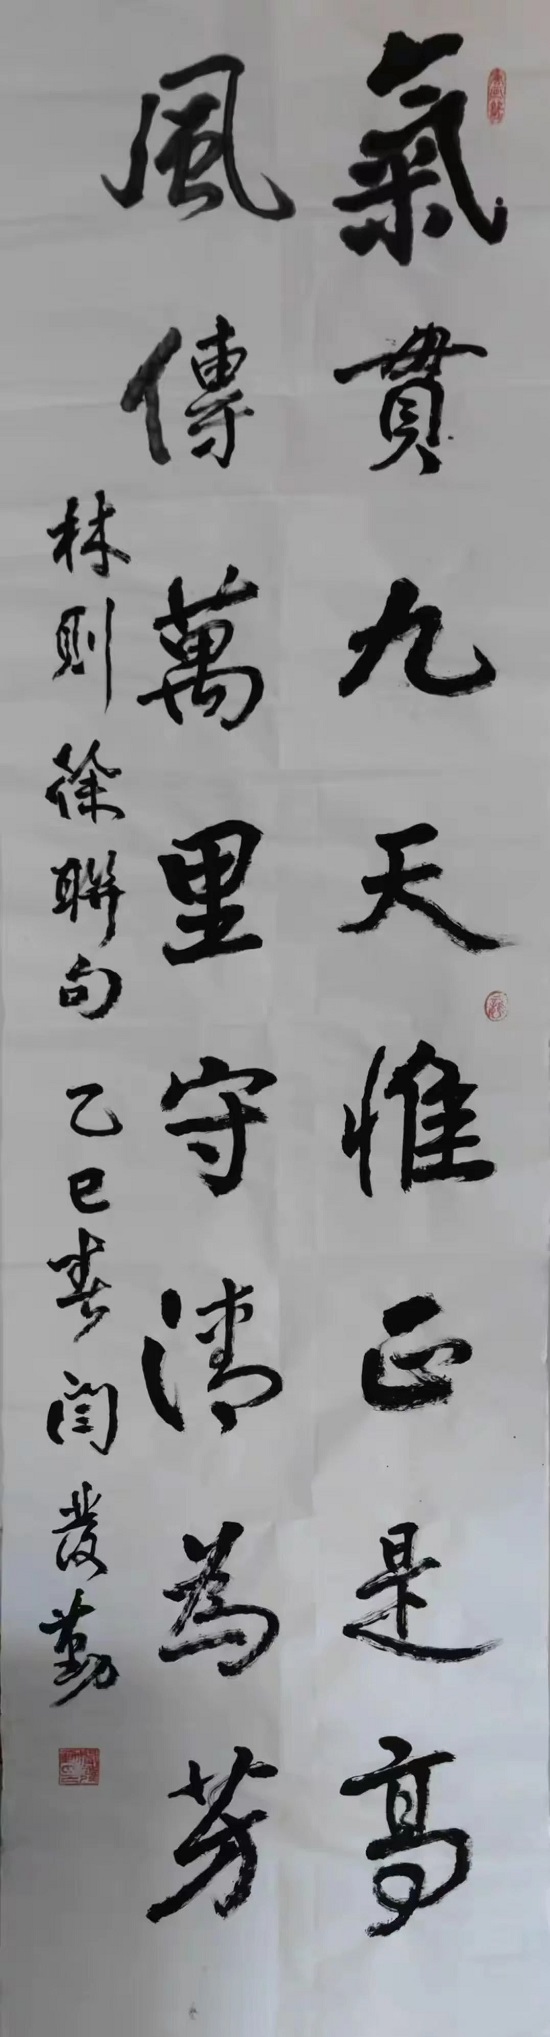 氣貫九天惟正是高
風傳萬里守清為芳
林則徐聯句 乙巳春 閆發勤